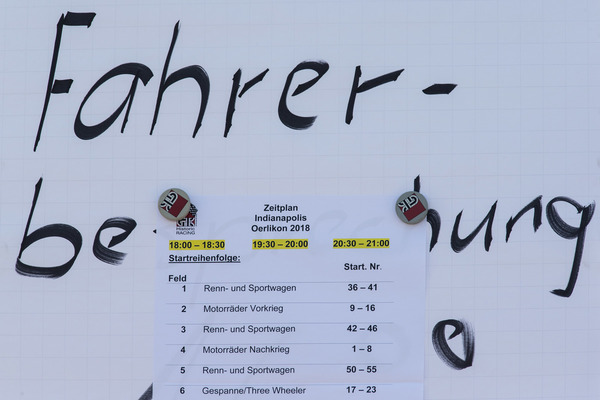 Fahrer-
be hung
Zeitplan
Indianapolis
Oerlikon 2018
18:00 – 18:30 19:30 – 20:00 20:30 – 21:00
Startreihenfolge:
Start. Nr.
Feld
1 Renn- und Sportwagen 36 – 41
2 Motorräder Vorkrieg 9 – 16
3 Renn- und Sportwagen 42 – 46
4 Motorräder Nachkrieg 1 – 8
5 Renn- und Sportwagen 50 – 55
6 Gespanne/Three Wheeler 17 – 23